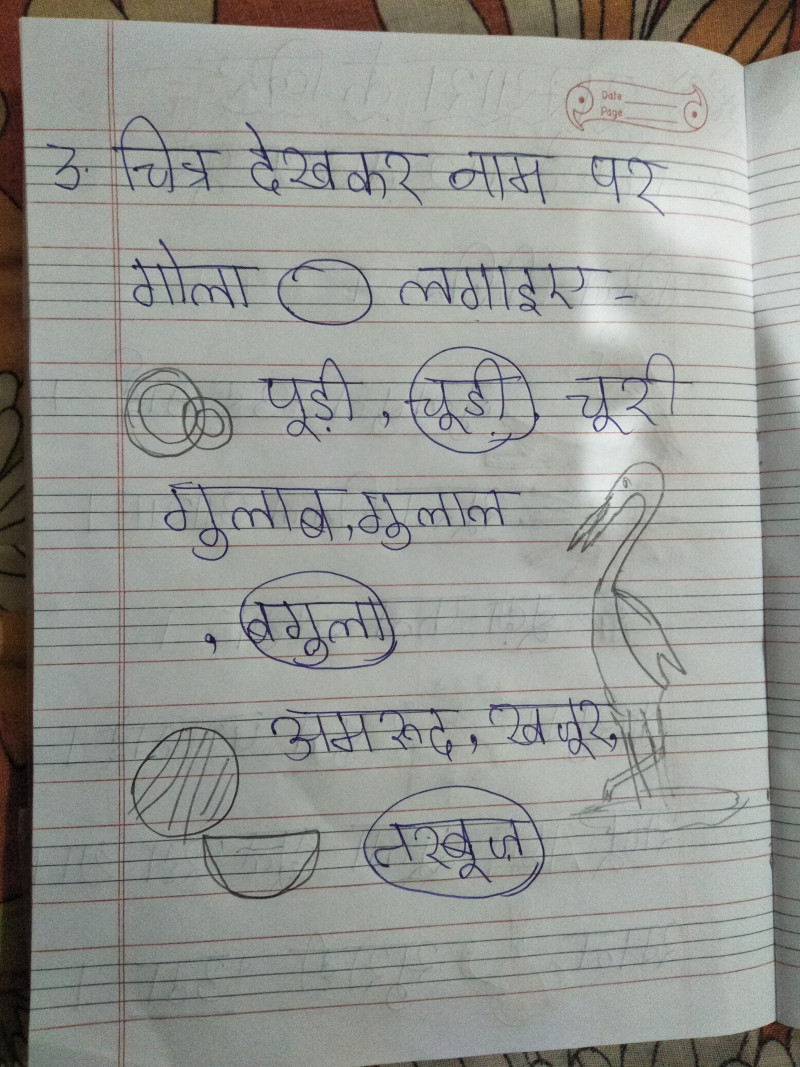 Date
Page
3. चित्र देखकर नाम पर
गोला लगाइए -
पूड़ी, चूड़ी, चूरी
गुलाब, गुलाल
, बगुला
अमरूद, खजूर,
तरबूज़